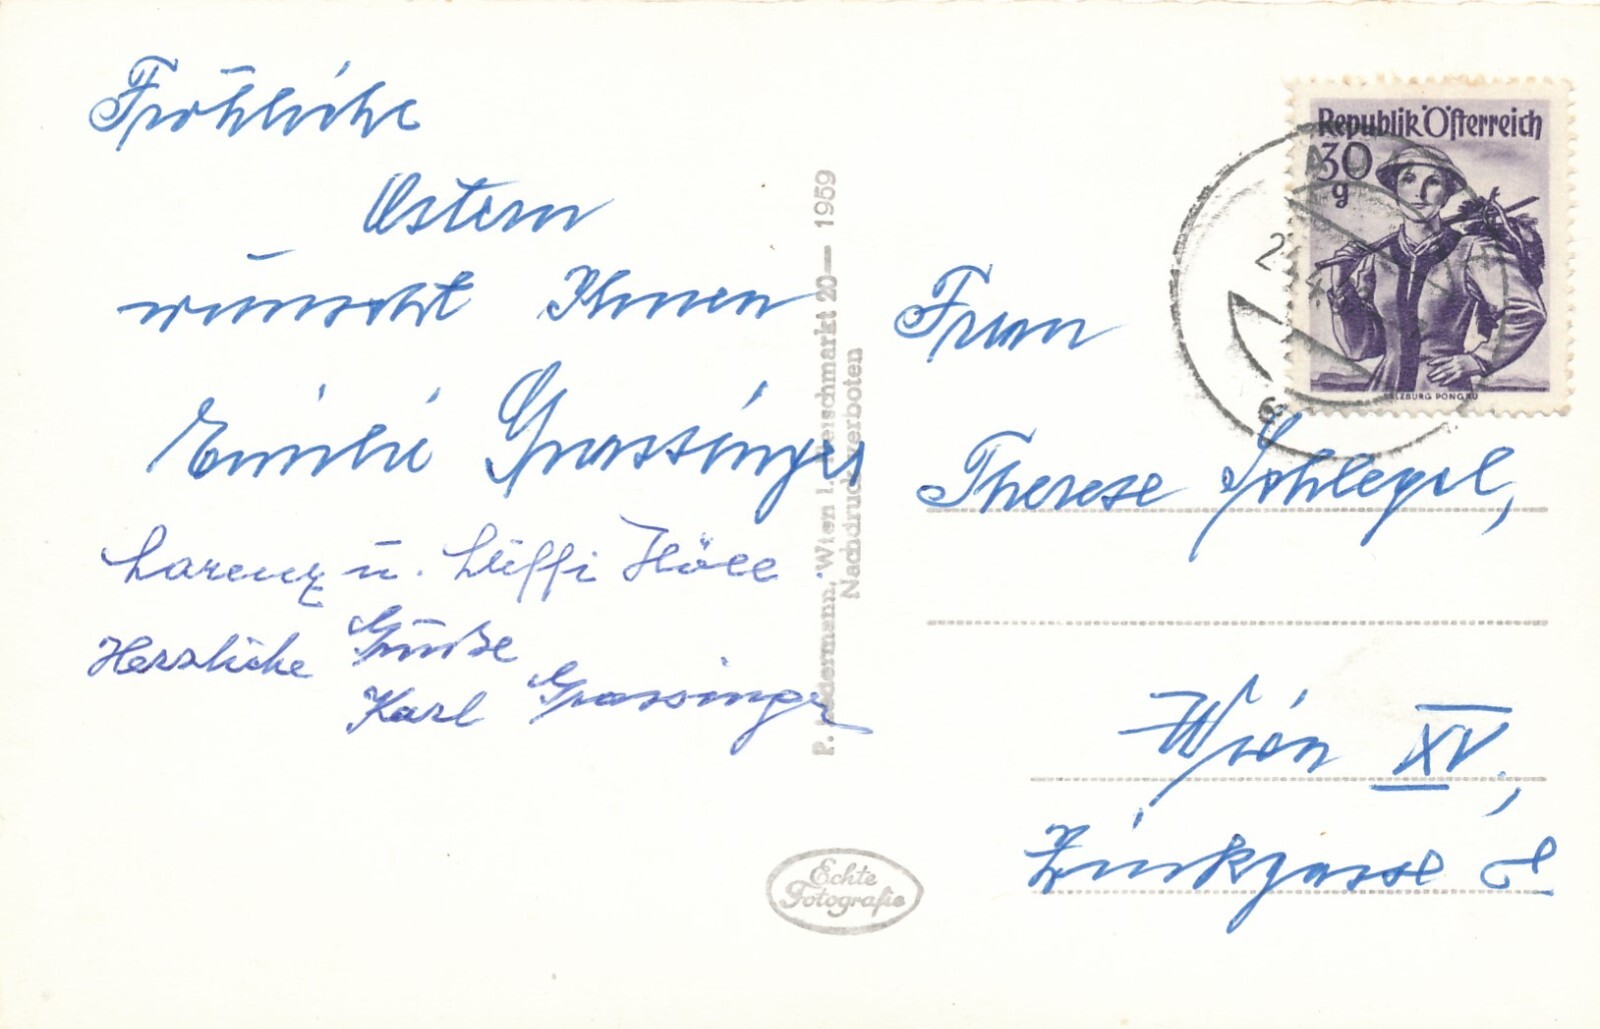 Fröhliche
Ostern
wünscht Ihnen
Emilie Grassinger
Lorenz u. Luffi Höll
Herzliche Grüße
Karl Grassinger
P. Ledermann, Wien I. Fleischmarkt 20— 1959
Nachdruck verboten
Echte
Fotografie
Republik Österreich
30
g
SALZBURG PONGAU
Frau
Therese Schlegel,
Wien XV.,
Zinkgasse